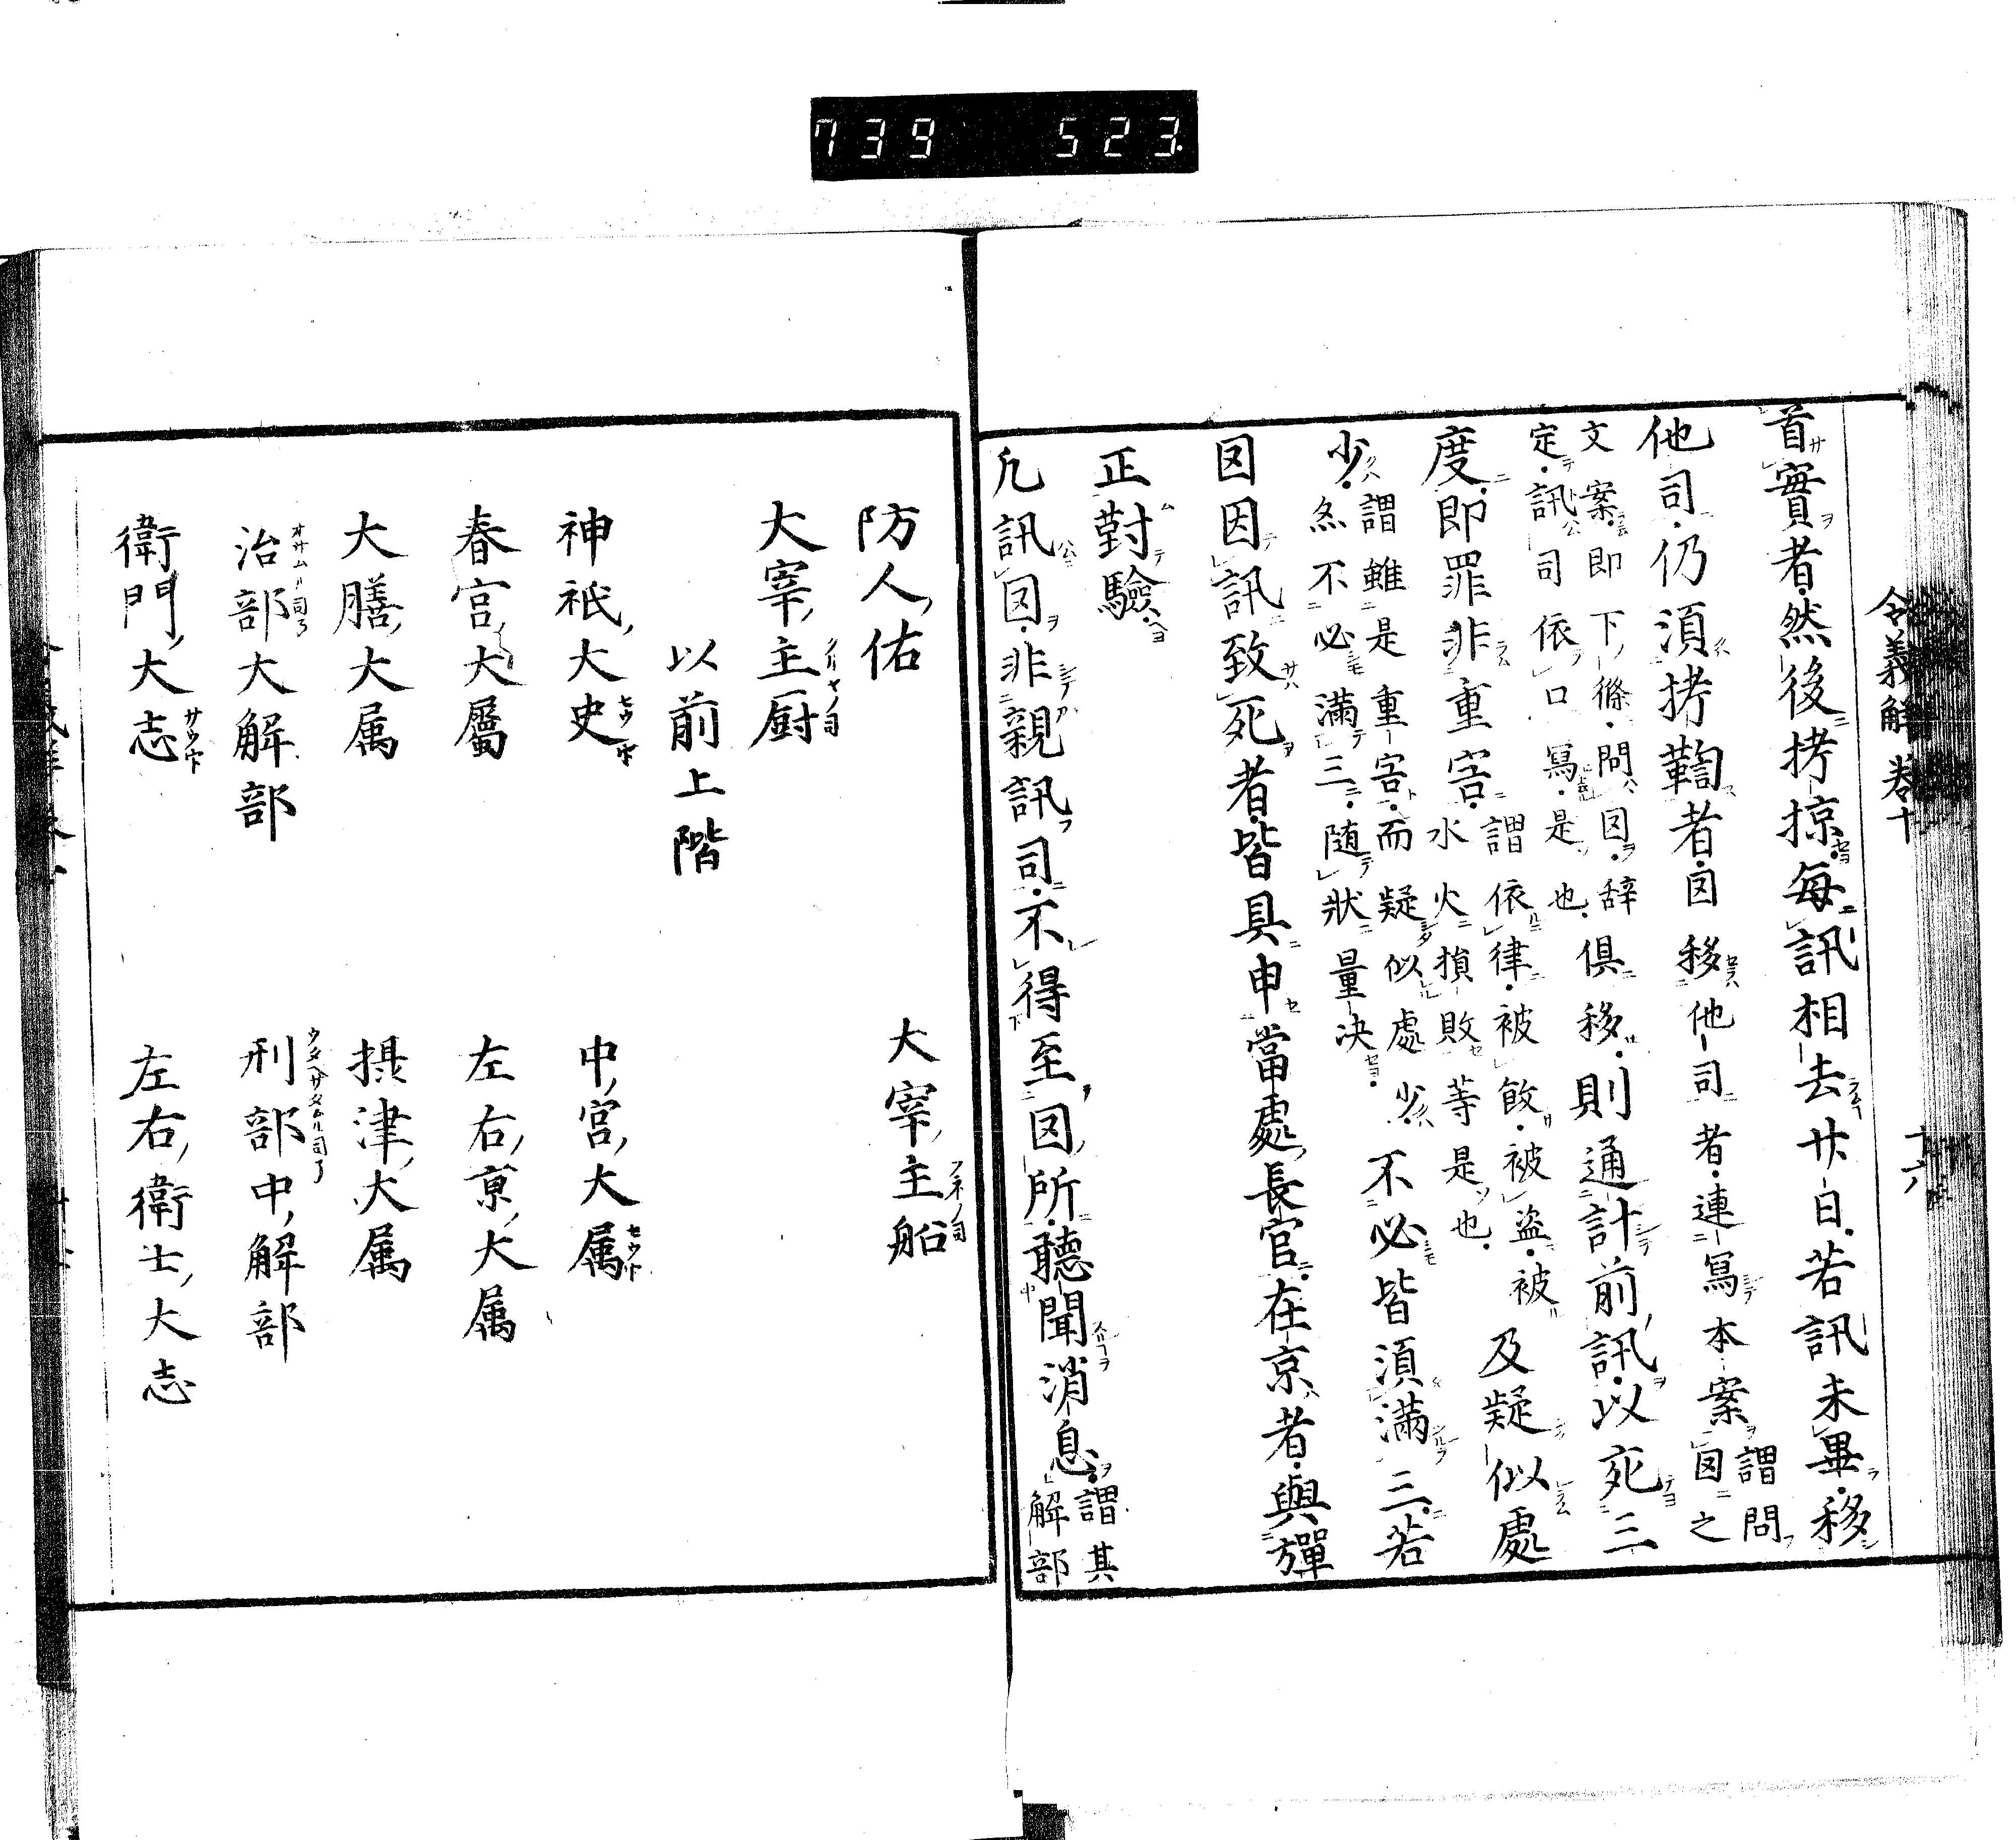 739 523.
令義解 卷十 十六
首實者然後拷掠每訊相去廿日若訊未畢移
他司仍湏拷鞫者囙移他司者連寫本案謂問囙之
文案即下條問囙辞俱移則通計前訊以死三
定訊司依口寫是也
度即罪非重害謂依律被飲被盗被及疑似處
水火損敗等是也
少謂雖是重害而疑似處少不必皆湏滿三若
㷊不必滿三随狀量决
囙因訊致死者皆具申當處長官在京者與彈
正對驗
凢訊囙非親訊司不得至囙所聽聞消息謂其
解部
防人佑 大宰主船
大宰主厨
以前上階
神祇大史 中宮大属
春宮大屬 左右京大属
大膳大属 摂津大属
治部大解部 刑部中解部
衛門大志 左右衛士大志